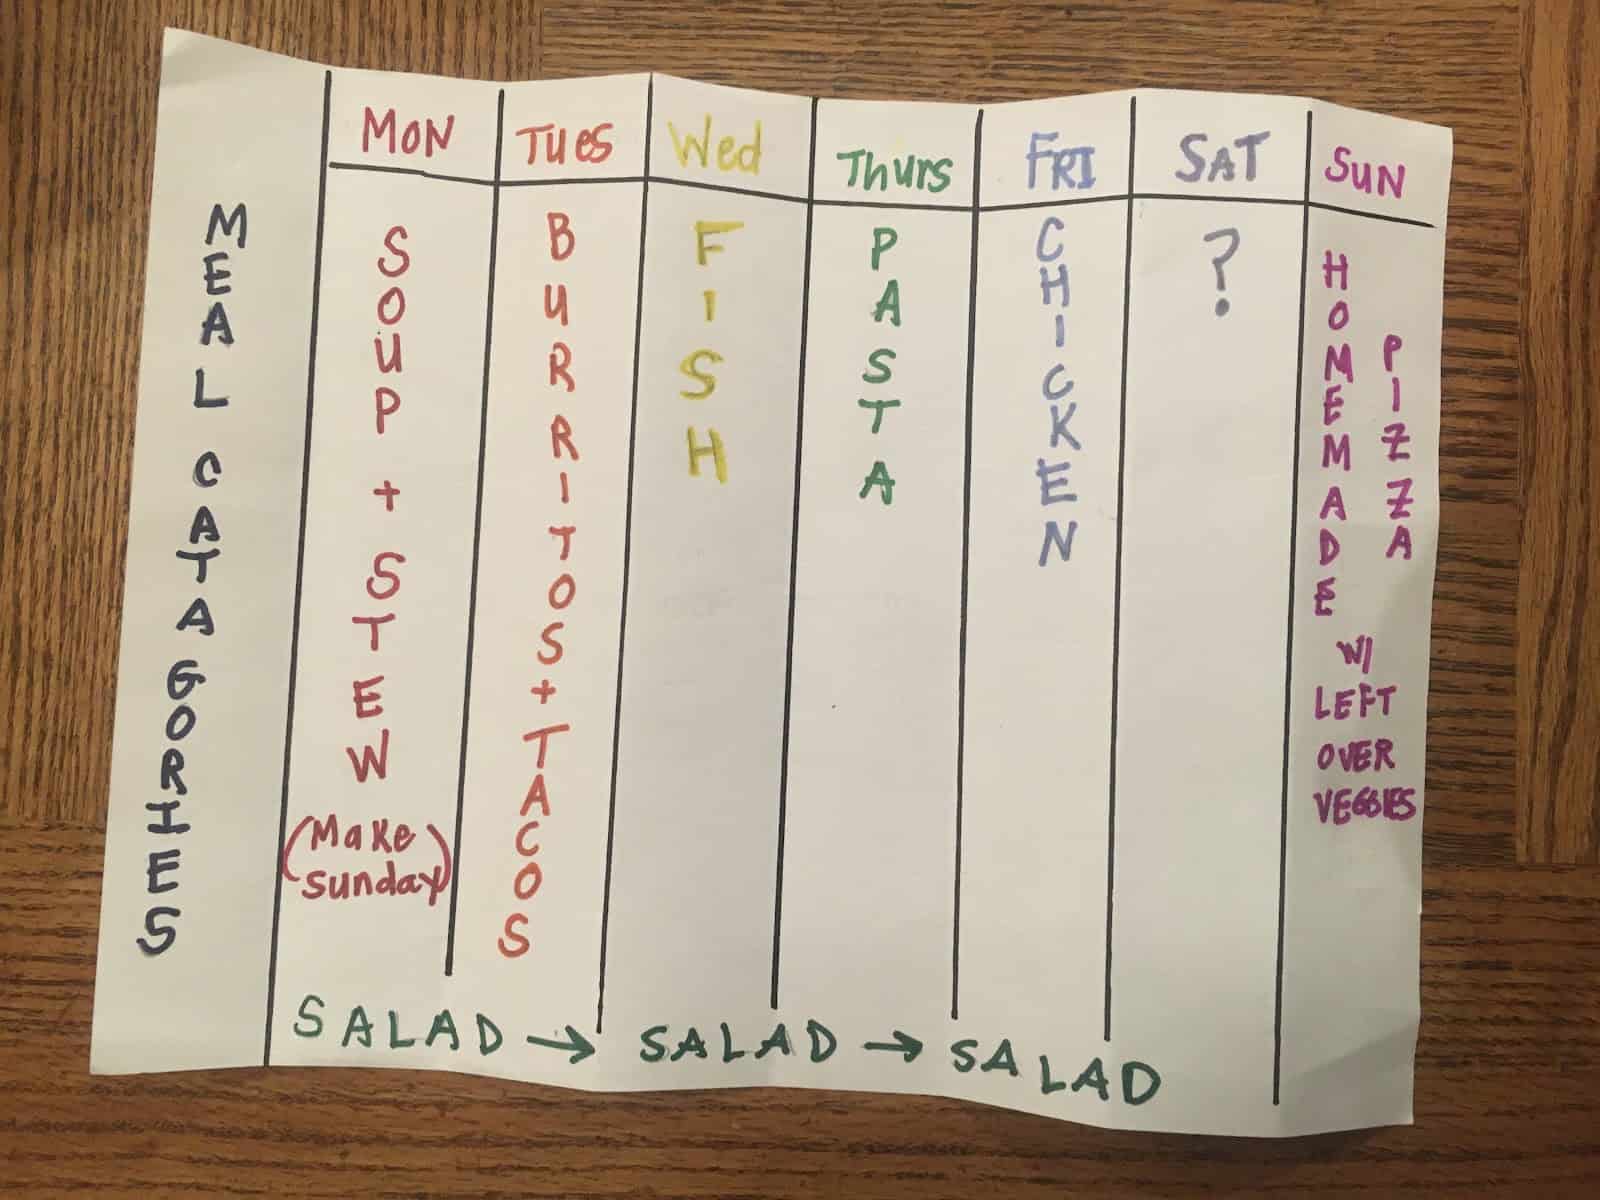 MEAL CATAGORIES
MON
SOUP + STEW
(Make
sunday)
TUES
BURRITOS + TACOS
Wed
FISH
Thurs
PASTA
FRI
CHICKEN
SAT
?
SUN
HOMEMADE
PIZZA
W/
LEFT
OVER
VEGGIES
SALAD → SALAD → SALAD